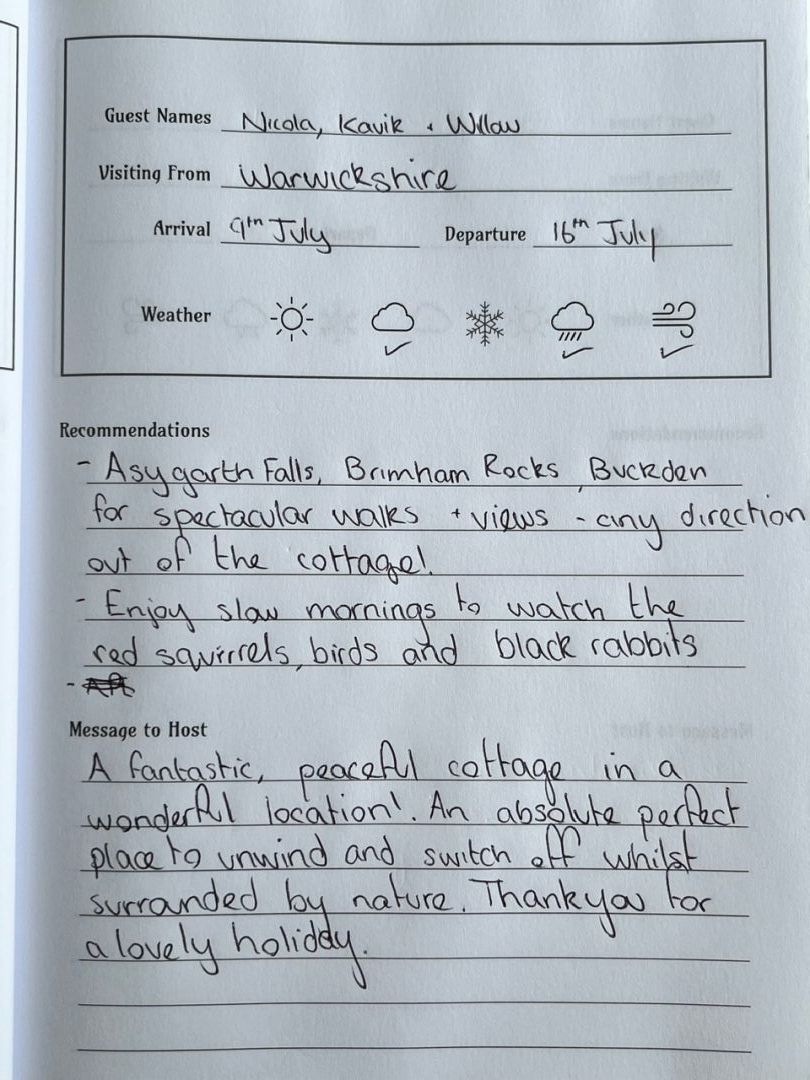 Guest Names Nicola, Kavik + Willow
Visiting From Warwickshire
Arrival 9th July Departure 16th July
Weather
Recommendations
- Asygarth Falls, Brimham Rocks, Buckden
for spectacular walks + views - any direction
out of the cottage!
- Enjoy slow mornings to watch the
red squirrels, birds and black rabbits
-
Message to Host
A fantastic, peaceful cottage in a
wonderful location!. An absolute perfect
place to unwind and switch off whilst
surranded by nature. Thankyou for
a lovely holiday.